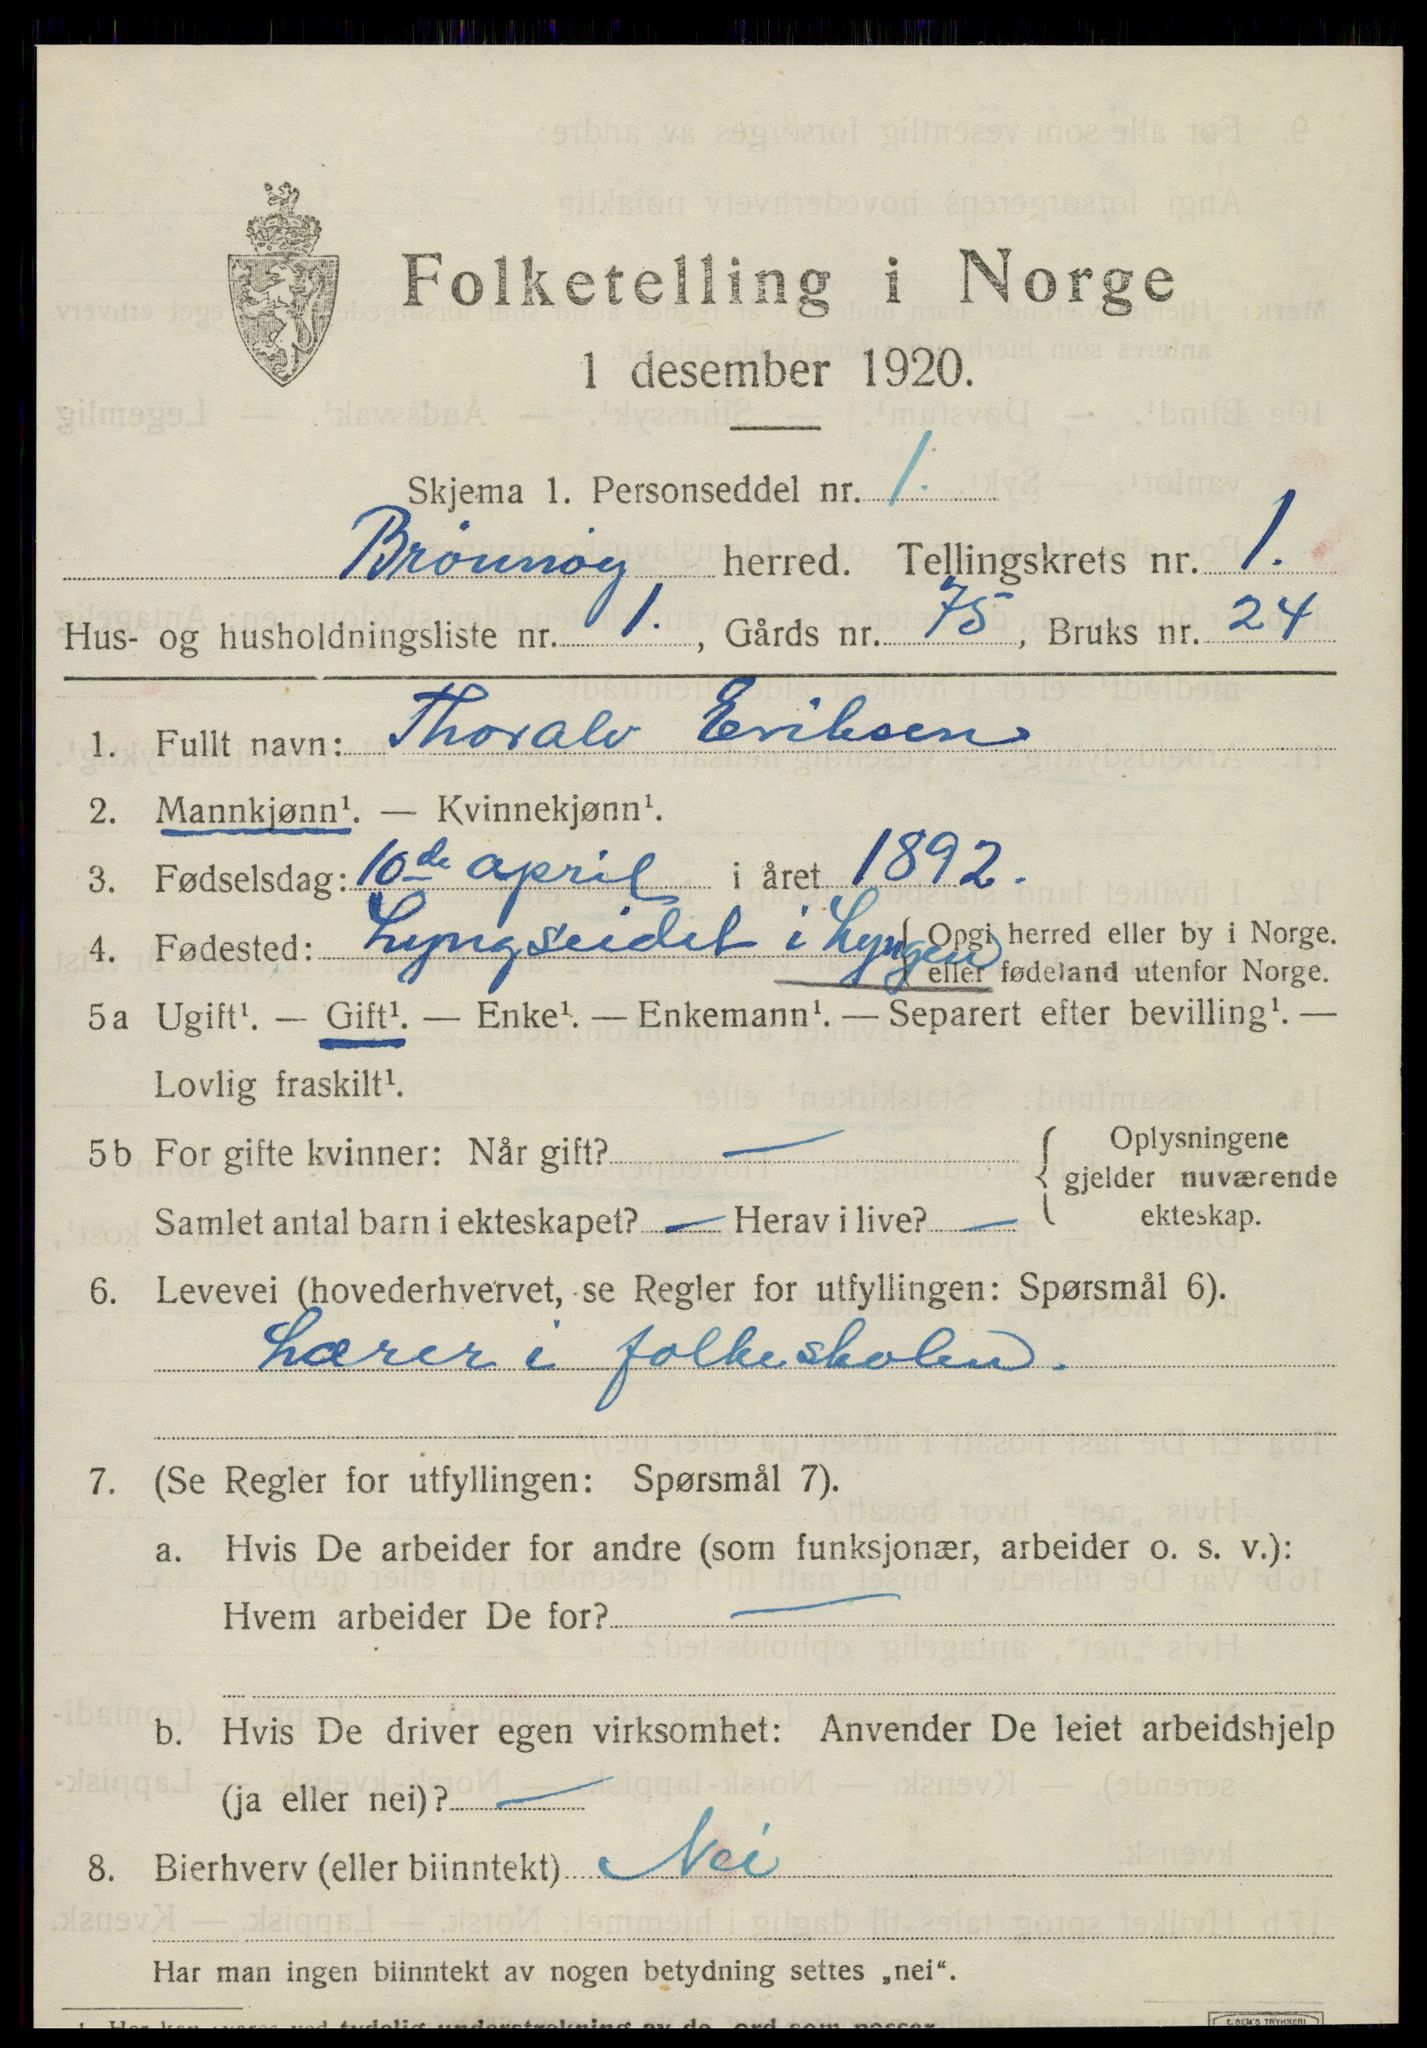 Folketelling i Norge
1 desember 1920.
Skjema 1. Personseddel nr. 1.
Brønnøy herred. Tellingskrets nr. 1.
Hus- og husholdningsliste nr. 1. , Gårds nr. 75 , Bruks nr. 24
1. Fullt navn: Thoralv Eriksen
2. Mannkjønn¹. — Kvinnekjønn¹.
3. Fødselsdag: 10de april i året 1892.
4. Fødested: Lyngseidet i Lyngen { Opgi herred eller by i Norge.
eller fødeland utenfor Norge.
5a Ugift¹. — Gift¹. — Enke¹. — Enkemann¹. — Separert efter bevilling¹. —
Lovlig fraskilt¹.
5b For gifte kvinner: Når gift? — { Oplysningene
gjelder nuværende
Samlet antal barn i ekteskapet? — Herav i live? — ekteskap.
6. Levevei (hovederhvervet, se Regler for utfyllingen: Spørsmål 6).
Lærer i folkeskolen.
7. (Se Regler for utfyllingen: Spørsmål 7).
a. Hvis De arbeider for andre (som funksjonær, arbeider o. s. v.):
Hvem arbeider De for? —
b. Hvis De driver egen virksomhet: Anvender De leiet arbeidshjelp
(ja eller nei)? —
8. Bierhverv (eller biinntekt) Nei
Har man ingen biinntekt av nogen betydning settes „nei“.